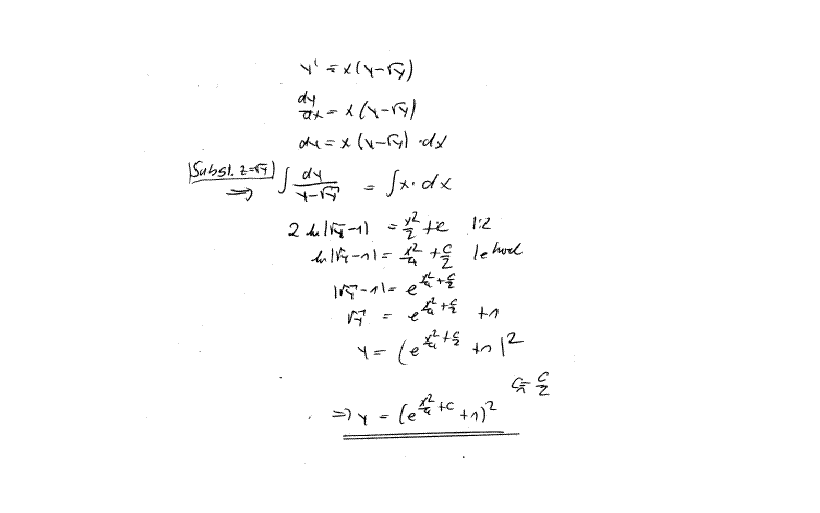 y' = x(y-√y)
dy/dx = x(y-√y)
dy = x(y-√y) · dx
|Subst. z=√y| ⇒ ∫ dy/(y-√y) = ∫ x · dx
2 ln|√y-1| = x²/2 + c |:2
ln|√y-1| = x²/4 + c/2 |e hoch
|√y-1| = e^(x²/4 + c/2)
√y = e^(x²/4 + c/2) + 1
y = (e^(x²/4 + c/2) + 1)²
c/2
⇒ y = (e^(x²/4 + c) + 1)²